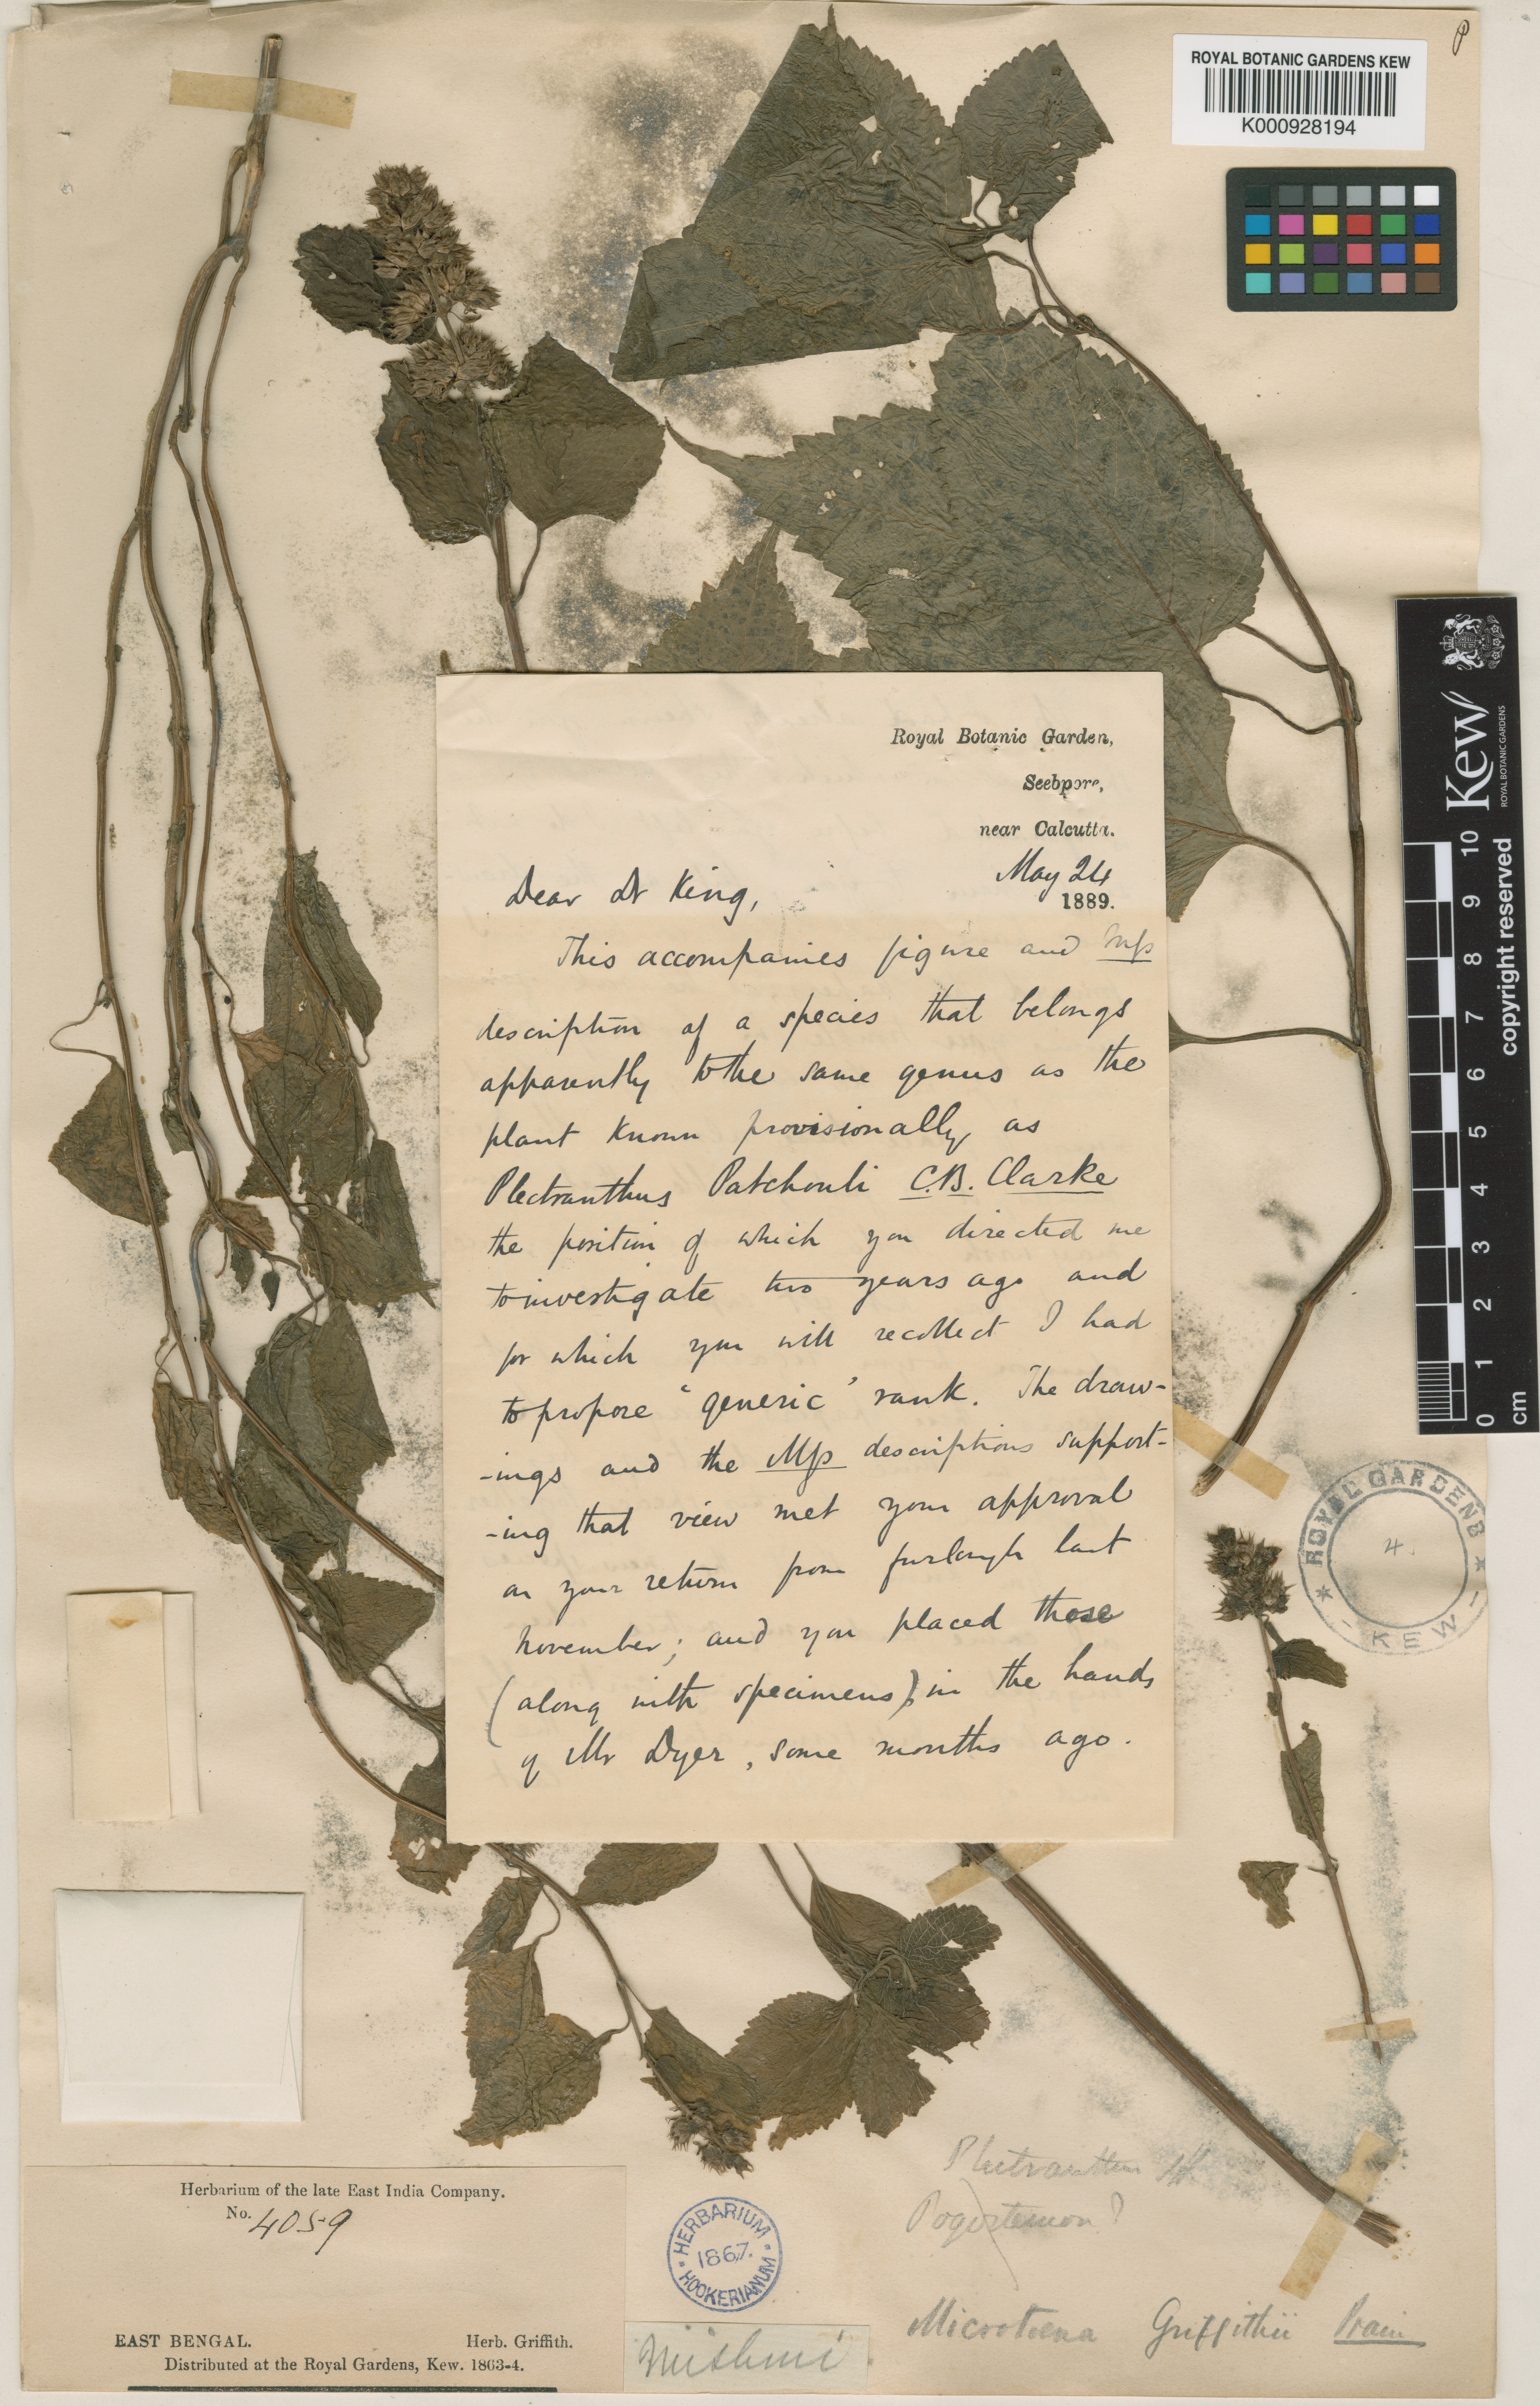 P
ROYAL BOTANIC GARDENS KEW
K000928194
Royal Botanic Garden,
Seebpore,
near Calcutta.
May 24
1889.
Dear Dr King,
This accompanies figure and Mſs
description of a species that belongs
apparently to the same genus as the
plant known provisionally as
Plectranthus Patchouli C.B. Clarke
the position of which you directed me
to investigate two years ago and
for which you will recollect I had
to propose 'generic' rank. The draw-
-ings and the Mſs descriptions support-
-ing that view met your approval
on your return from furlough last
November; and you placed these
(along with specimens) in the hands
of Mr Dyer, some months ago.
Kew
ROYAL BOTANIC GARDENS
copyright reserved
10 9 8 7 6 5 4 3 2 1 0 cm
ROYAL GARDENS KEW
4.
Plectranthus
Pogostemon?
Microtoena Griffithii Prain
Herbarium of the late East India Company.
No. 4059
EAST BENGAL. Herb. Griffith.
Distributed at the Royal Gardens, Kew. 1863-4.
HERBARIUM HOOKERIANUM
1867.
Mishmi